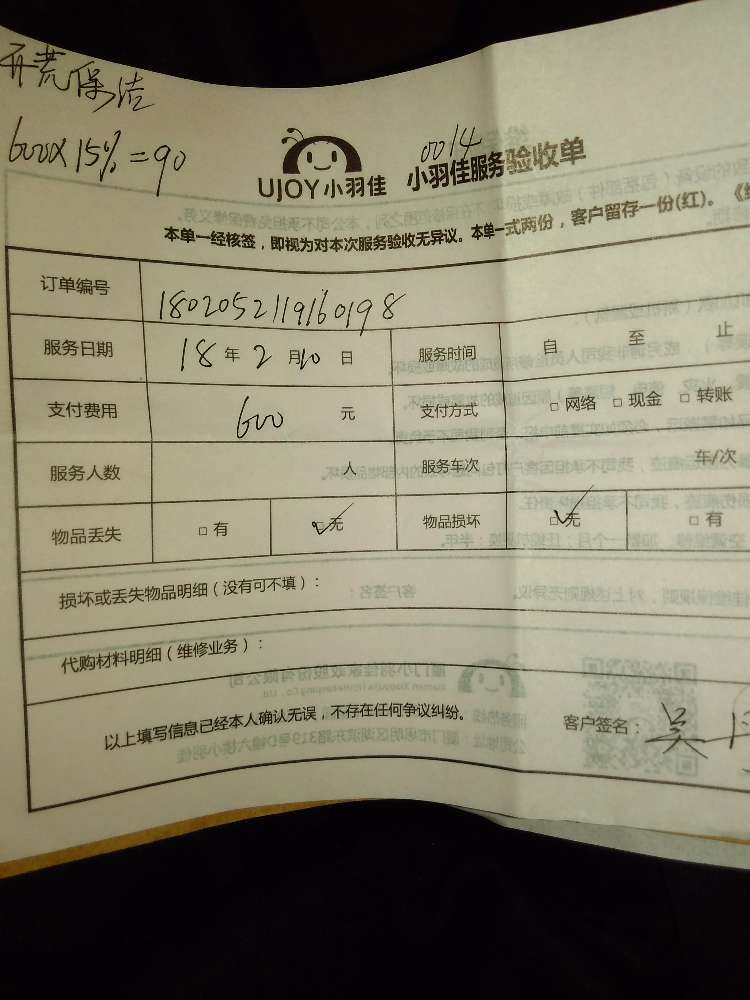 开荒保洁
600×15%=90
0014
UJOY小羽佳 小羽佳服务验收单
本单一经核签，即视为对本次服务验收无异议。本单一式两份，客户留存一份(红)。
订单编号 1802052119160198
服务日期 18 年 2 月 10 日 服务时间 自 至 止
支付费用 600 元 支付方式 □ 网络 □ 现金 □ 转账
服务人数 人 服务车次 车/次
物品丢失 □ 有 ☑ 无 物品损坏 ☑ 无 □ 有
损坏或丢失物品明细（没有可不填）：
代购材料明细（维修业务）：
以上填写信息已经本人确认无误，不存在任何争议纠纷。 客户签名：吴